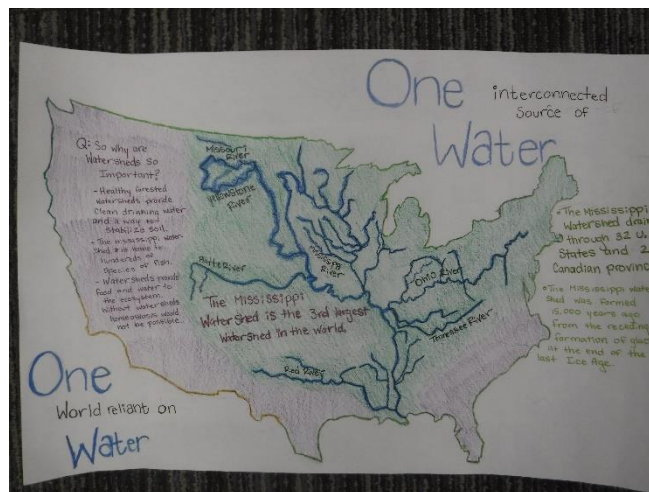 One interconnected
Source of
Water
Q: So why are
Watersheds so
Important?
- Healthy forested
Watersheds provide
Clean drinking water
and a way to
Stabilize soil.
- The Mississippi Water-
shed is home to
hundreds of
Species of fish.
- Watersheds provide
food and water to
the ecosystem.
Without watersheds
would
not be possible.
Missouri
River
Yellowstone
River
Platte River
Mississippi
River
Ohio River
Tennessee River
Red River
The Mississippi
Watershed is the 3rd largest
Watershed in the world.
• The Mississippi
Watershed drain
through 32 U.
States and 2
Canadian provinc
• The Mississippi Water
shed was formed
5,000 years ago
from the receding
formation of glac
at the end of the
last Ice Age.
One
World reliant on
Water